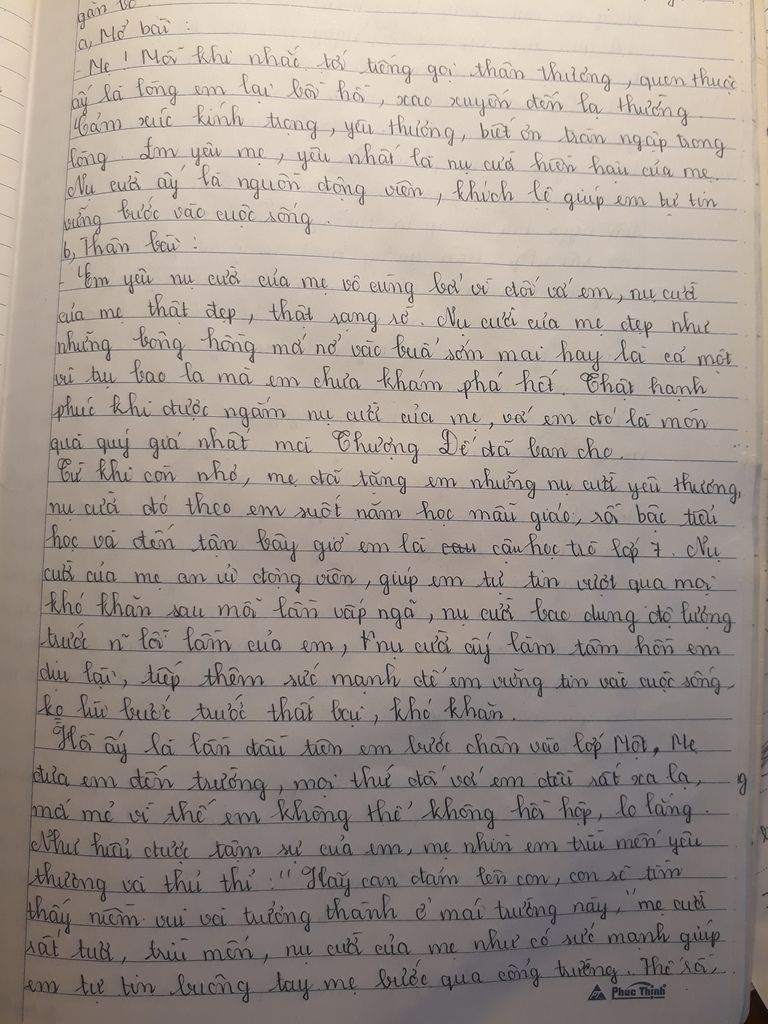 gắn bó.
a, Mở bài :
- Mẹ ! Mỗi khi nhắc tới tiếng gọi thân thương, quen thuộc
ấy là lòng em lại bồi hồi, xao xuyến đến lạ thường.
Cảm xúc kính trọng, yêu thương, biết ơn tràn ngập trong
lòng. Em yêu mẹ, yêu nhất là nụ cười hiền hậu của mẹ.
Nụ cười ấy là nguồn động viên, khích lệ giúp em tự tin
vững bước vào cuộc sống.
b, Thân bài :
- Em yêu nụ cười của mẹ vô cùng bởi vì đối với em, nụ cười
của mẹ thật đẹp, thật rạng rỡ. Nụ cười của mẹ đẹp như
những bông hồng mới nở vào buổi sớm mai hay là cả một
vũ trụ bao la mà em chưa khám phá hết. Thật hạnh
phúc khi được ngắm nụ cười của mẹ, với em đó là món
quà quý giá nhất mà Thượng Đế đã ban cho.
Từ khi còn nhỏ, mẹ đã tặng em những nụ cười yêu thương,
nụ cười đó theo em suốt năm học mẫu giáo, rồi bậc tiểu
học và đến tận bây giờ em là cậu học trò lớp 7. Nụ
cười của mẹ an ủi động viên, giúp em tự tin vượt qua mọi
khó khăn sau mỗi lần vấp ngã, nụ cười bao dung độ lượng
trước n~ lỗi lầm của em, nụ cười ấy làm tâm hồn em
dịu lại, tiếp thêm sức mạnh để em vững tin vào cuộc sống
ko lùi bước trước thất bại, khó khăn.
Hồi ấy là lần đầu tiên em bước chân vào lớp Một, Mẹ
đưa em đến trường, mọi thứ đối với em đều rất xa lạ,
mới mẻ vì thế em không thể không hồi hộp, lo lắng.
Như hiểu được tâm sự của em, mẹ nhìn em trìu mến yêu
thương và thủ thỉ : " Hãy can đảm lên con, con sẽ tìm
thấy niềm vui và trưởng thành ở mái trường này," mẹ cười
rất tươi, trìu mến, nụ cười của mẹ như có sức mạnh giúp
em tự tin buông tay mẹ bước qua cổng trường. Thế rồi,
Phuc Thinh